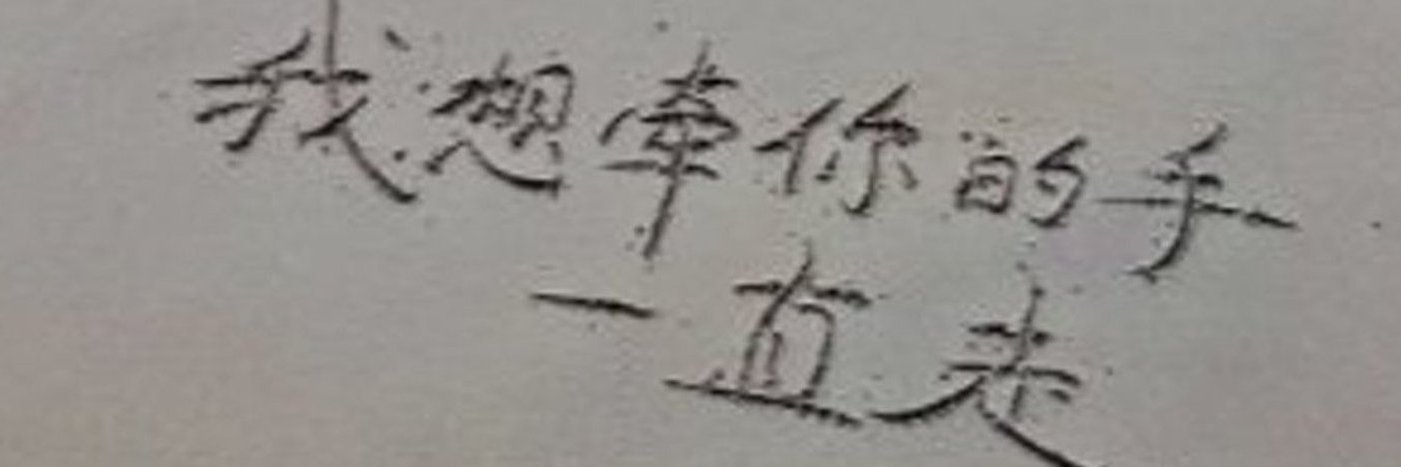 我想牵你的手
一直走